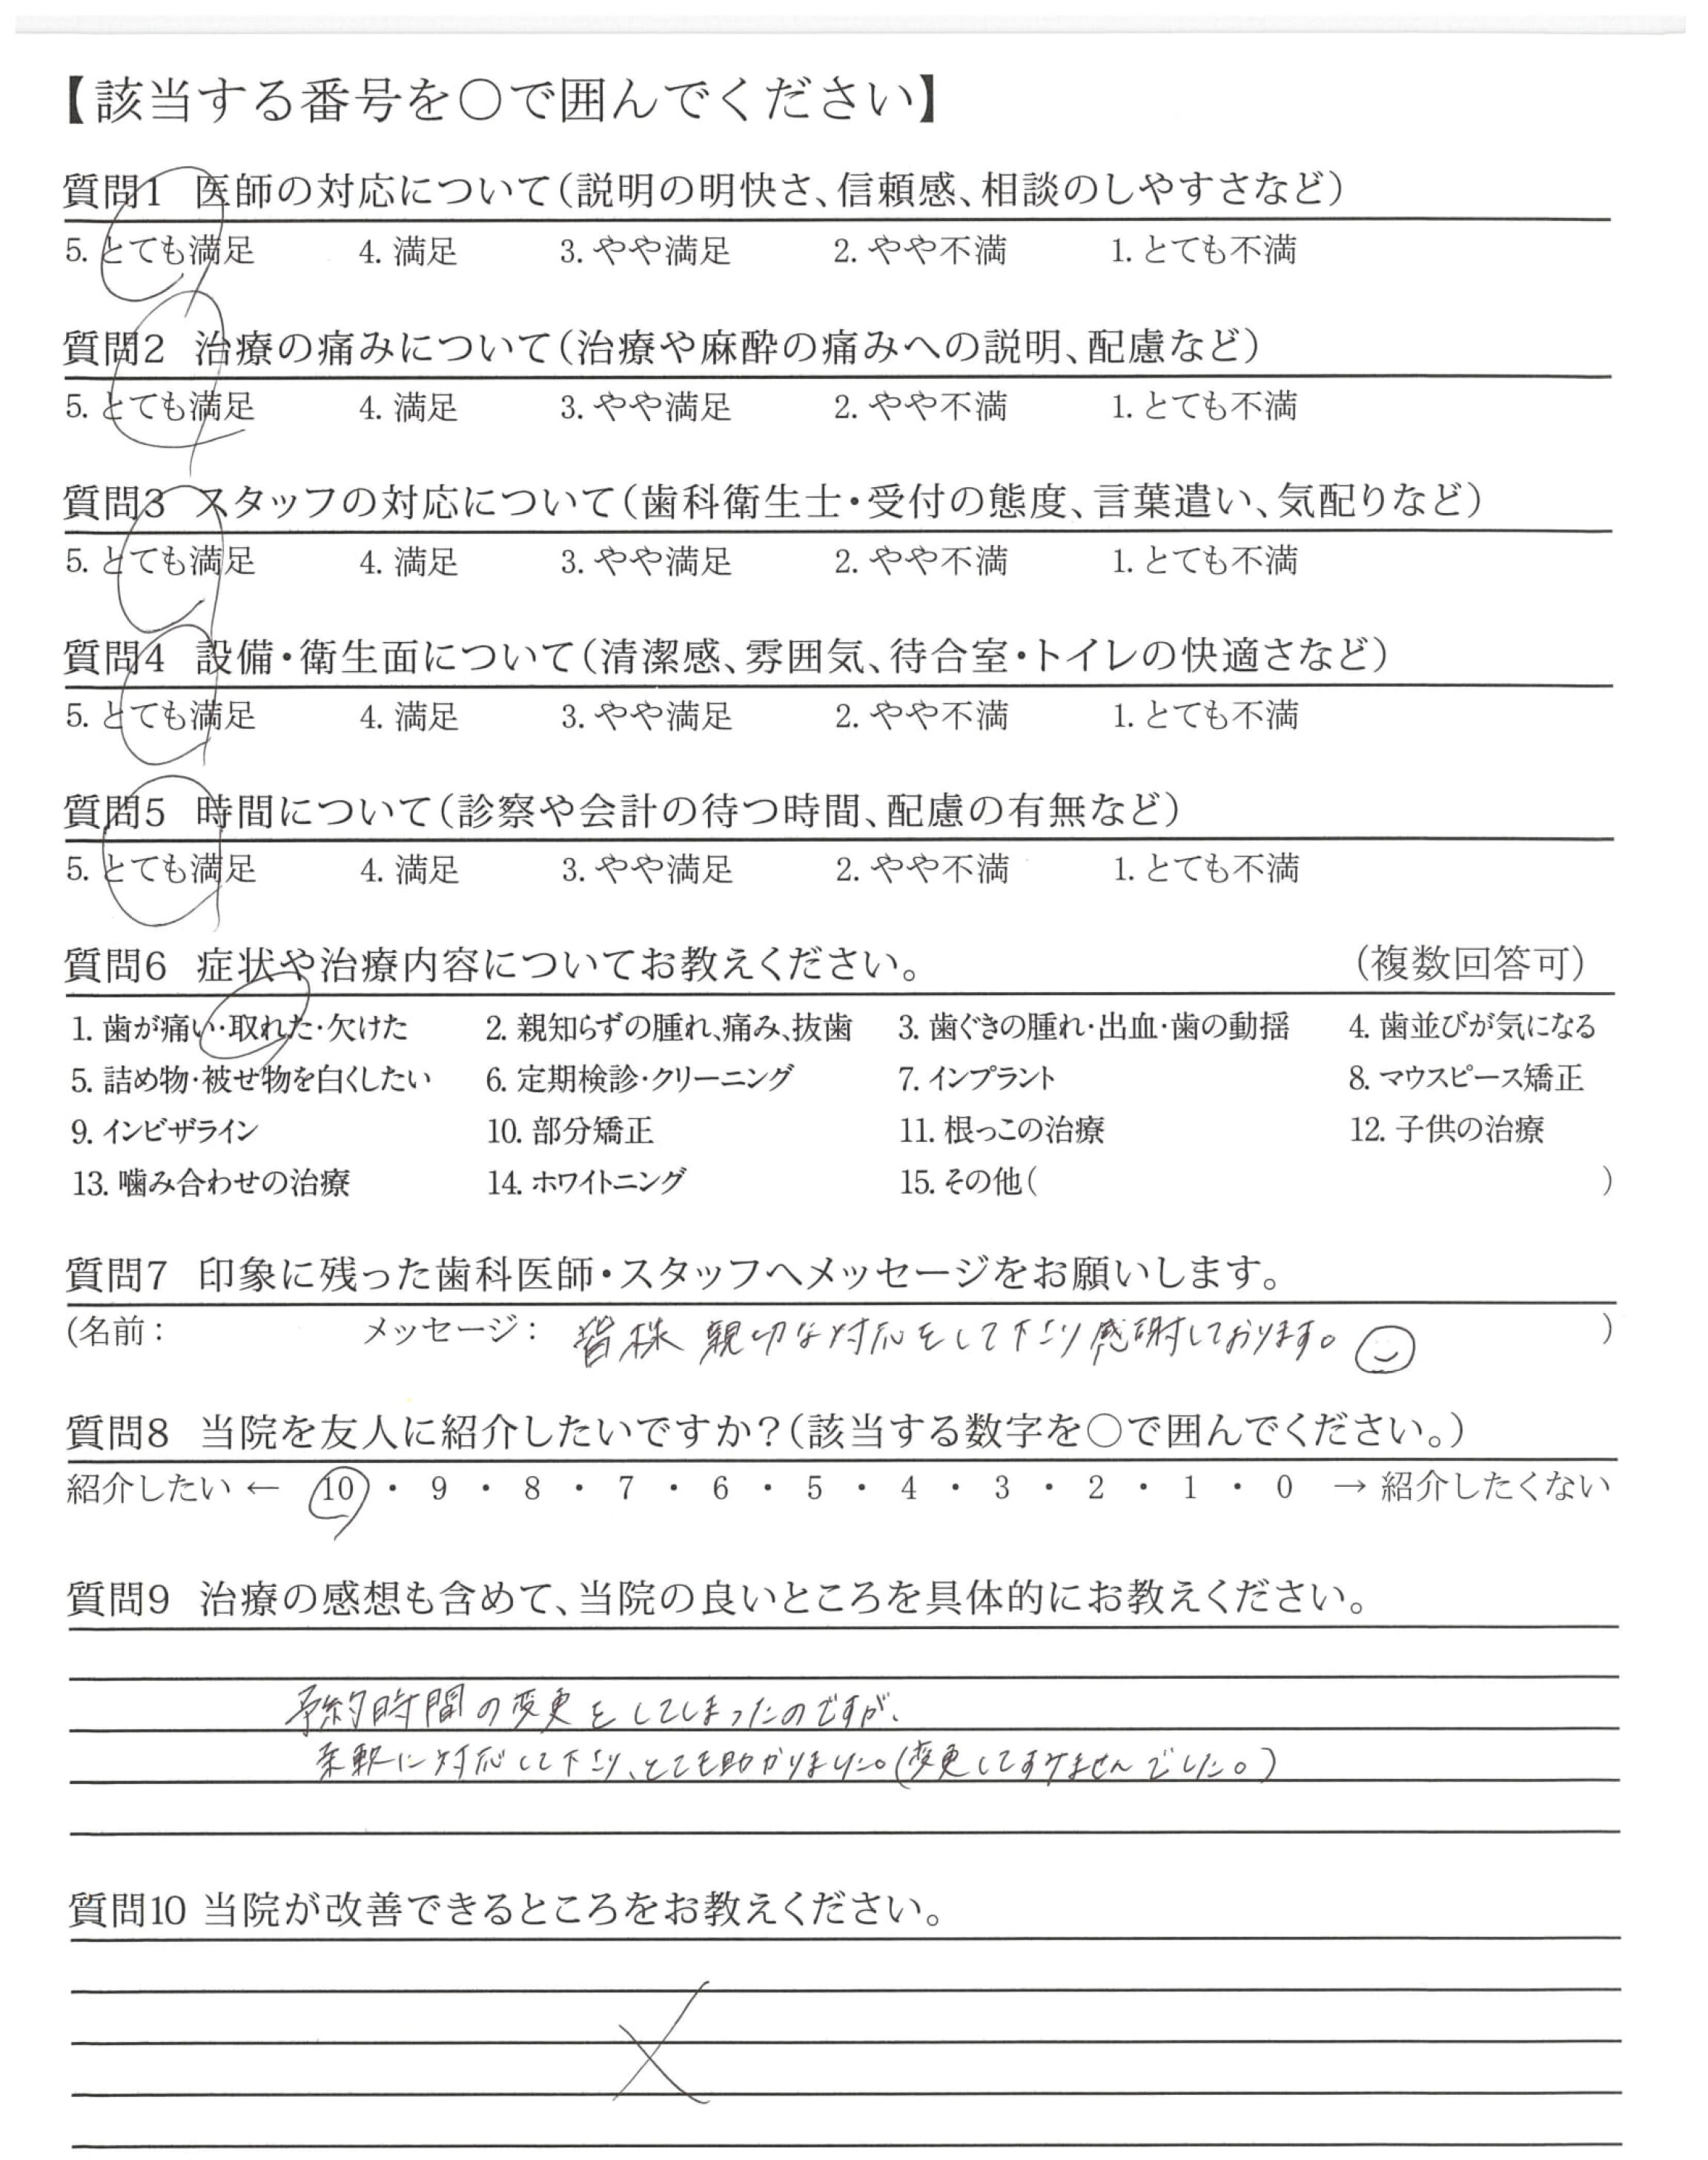 【該当する番号を○で囲んでください】
質問1 医師の対応について(説明の明快さ、信頼感、相談のしやすさなど)
5. とても満足 4. 満足 3. やや満足 2. やや不満 1. とても不満
質問2 治療の痛みについて(治療や麻酔の痛みへの説明、配慮など)
5. とても満足 4. 満足 3. やや満足 2. やや不満 1. とても不満
質問3 スタッフの対応について(歯科衛生士・受付の態度、言葉遣い、気配りなど)
5. とても満足 4. 満足 3. やや満足 2. やや不満 1. とても不満
質問4 設備・衛生面について(清潔感、雰囲気、待合室・トイレの快適さなど)
5. とても満足 4. 満足 3. やや満足 2. やや不満 1. とても不満
質問5 時間について(診察や会計の待つ時間、配慮の有無など)
5. とても満足 4. 満足 3. やや満足 2. やや不満 1. とても不満
質問6 症状や治療内容についてお教えください。 (複数回答可)
1. 歯が痛い・取れた・欠けた 2. 親知らずの腫れ、痛み、抜歯 3. 歯ぐきの腫れ・出血・歯の動揺 4. 歯並びが気になる
5. 詰め物・被せ物を白くしたい 6. 定期検診・クリーニング 7. インプラント 8. マウスピース矯正
9. インビザライン 10. 部分矯正 11. 根っこの治療 12. 子供の治療
13. 噛み合わせの治療 14. ホワイトニング 15. その他( )
質問7 印象に残った歯科医師・スタッフへメッセージをお願いします。
(名前: メッセージ: 皆様 親切な対応をして下さり感謝しております。 )
質問8 当院を友人に紹介したいですか?(該当する数字を○で囲んでください。)
紹介したい ← 10 ・ 9 ・ 8 ・ 7 ・ 6 ・ 5 ・ 4 ・ 3 ・ 2 ・ 1 ・ 0 → 紹介したくない
質問9 治療の感想も含めて、当院の良いところを具体的にお教えください。
予約時間の変更をしてしまったのですが、
柔軟に対応して下さり、とても助かりました。(変更してすみませんでした。)
質問10 当院が改善できるところをお教えください。